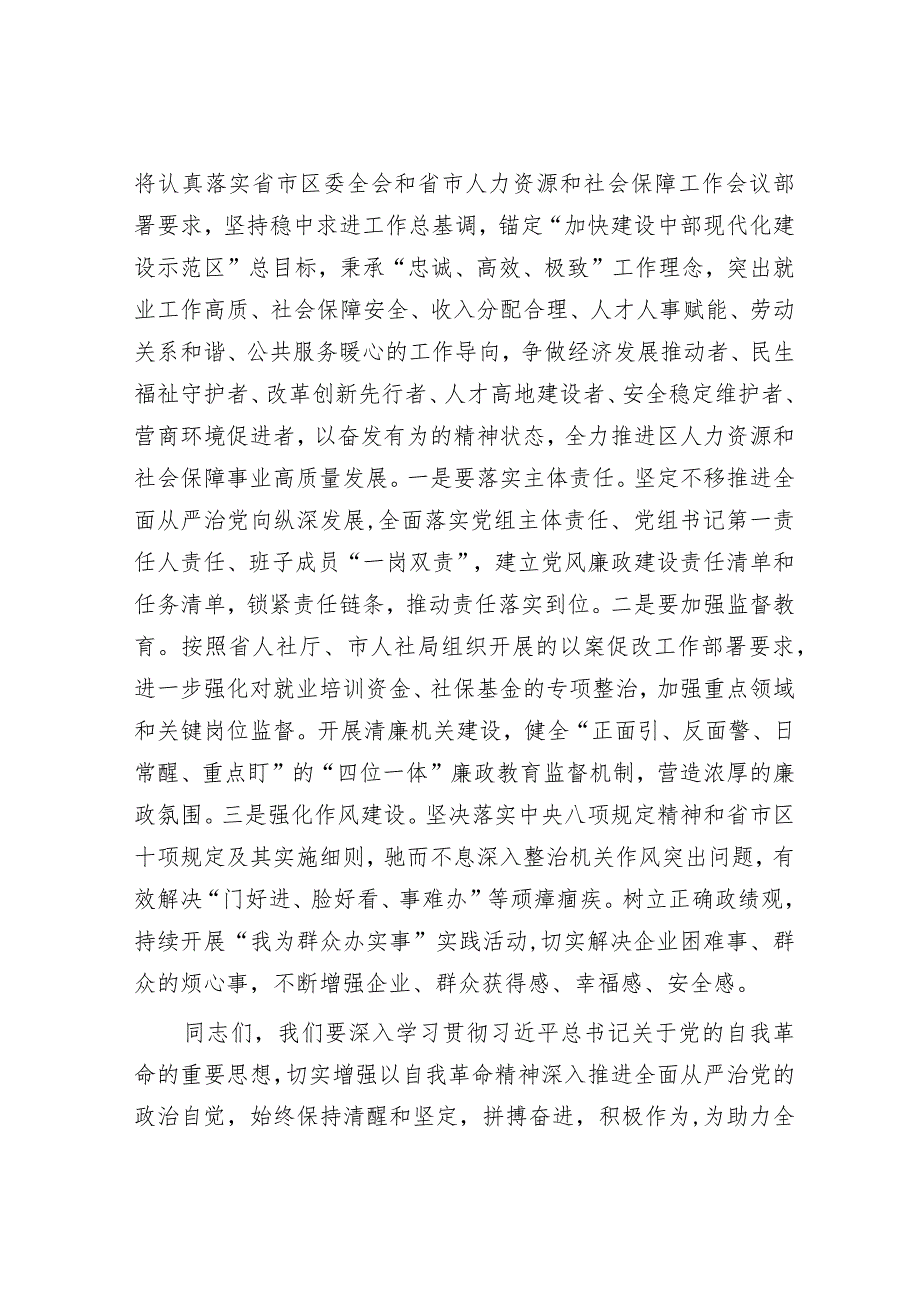 将认真落实省市区委全会和省市人力资源和社会保障工作会议部
署要求，坚持稳中求进工作总基调，锚定“加快建设中部现代化建
设示范区”总目标，秉承“忠诚、高效、极致”工作理念，突出就
业工作高质、社会保障安全、收入分配合理、人才人事赋能、劳动
关系和谐、公共服务暖心的工作导向，争做经济发展推动者、民生
福祉守护者、改革创新先行者、人才高地建设者、安全稳定维护者、
营商环境促进者，以奋发有为的精神状态，全力推进区人力资源和
社会保障事业高质量发展。一是要落实主体责任。坚定不移推进全
面从严治党向纵深发展,全面落实党组主体责任、党组书记第一责
任人责任、班子成员“一岗双责”，建立党风廉政建设责任清单和
任务清单，锁紧责任链条，推动责任落实到位。二是要加强监督教
育。按照省人社厅、市人社局组织开展的以案促改工作部署要求，
进一步强化对就业培训资金、社保基金的专项整治，加强重点领域
和关键岗位监督。开展清廉机关建设，健全“正面引、反面警、日
常醒、重点盯”的“四位一体”廉政教育监督机制，营造浓厚的廉
政氛围。三是强化作风建设。坚决落实中央八项规定精神和省市区
十项规定及其实施细则，驰而不息深入整治机关作风突出问题，有
效解决“门好进、脸好看、事难办”等顽瘴痼疾。树立正确政绩观，
持续开展“我为群众办实事”实践活动,切实解决企业困难事、群
众的烦心事，不断增强企业、群众获得感、幸福感、安全感。
同志们，我们要深入学习贯彻习近平总书记关于党的自我革
命的重要思想,切实增强以自我革命精神深入推进全面从严治党的
政治自觉，始终保持清醒和坚定，拼搏奋进，积极作为,为助力全